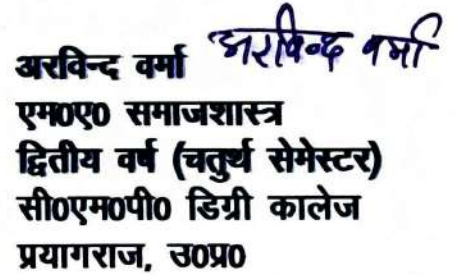 अरविन्द वर्मा अरविन्द वर्मा
एम0ए0 समाजशास्त्र
द्वितीय वर्ष (चतुर्थ सेमेस्टर)
सी0एम0पी0 डिग्री कालेज
प्रयागराज, उ0प्र0